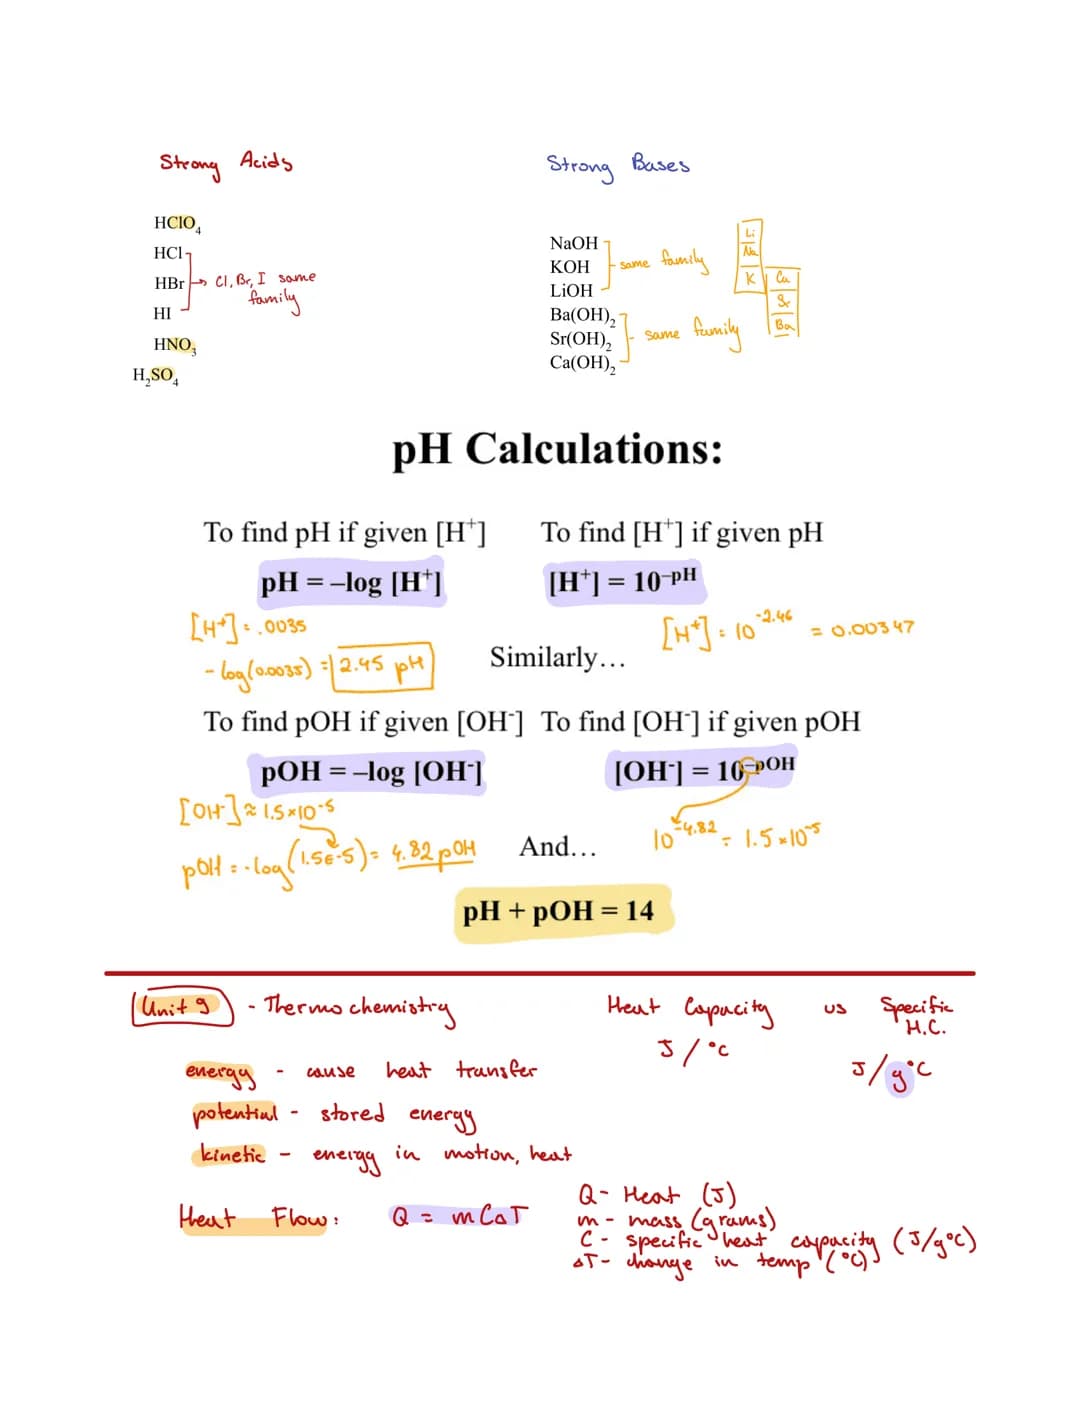 Strong Acids
Strong Bases
HClO₄
HCl
HBr → Cl, Br, I same
family
HI
HNO₃
H₂SO₄
NaOH
KOH same family
LiOH
Ba(OH)₂
Sr(OH)₂ same family
Ca(OH)₂
Li
Na
K
Ca
Sr
Ba
pH Calculations:
To find pH if given [H⁺] To find [H⁺] if given pH
pH = –log [H⁺] [H⁺] = 10⁻ᵖᴴ
[H⁺] = .0035
- log(0.0035) = 2.45 pH
[H⁺] = 10⁻²·⁴⁶ = 0.00347
Similarly…
To find pOH if given [OH⁻] To find [OH⁻] if given pOH
pOH = –log [OH⁻] [OH⁻] = 10⁻ᵖᴼᴴ
[OH⁻] ≈ 1.5×10⁻⁵
pOH = -log(1.5E-5) = 4.82 pOH
10⁻⁴·⁸² = 1.5×10⁻⁵
And…
pH + pOH = 14
Unit 9 - Thermochemistry
energy - cause heat transfer
potential - stored energy
kinetic - energy in motion, heat
Heat Flow: Q = mC▵T
Heat Capacity vs Specific
H.C.
J/°C
J/g°C
Q- Heat (J)
m - mass (grams)
C - specific heat capacity (J/g°C)
▵T- change in temp (°C)